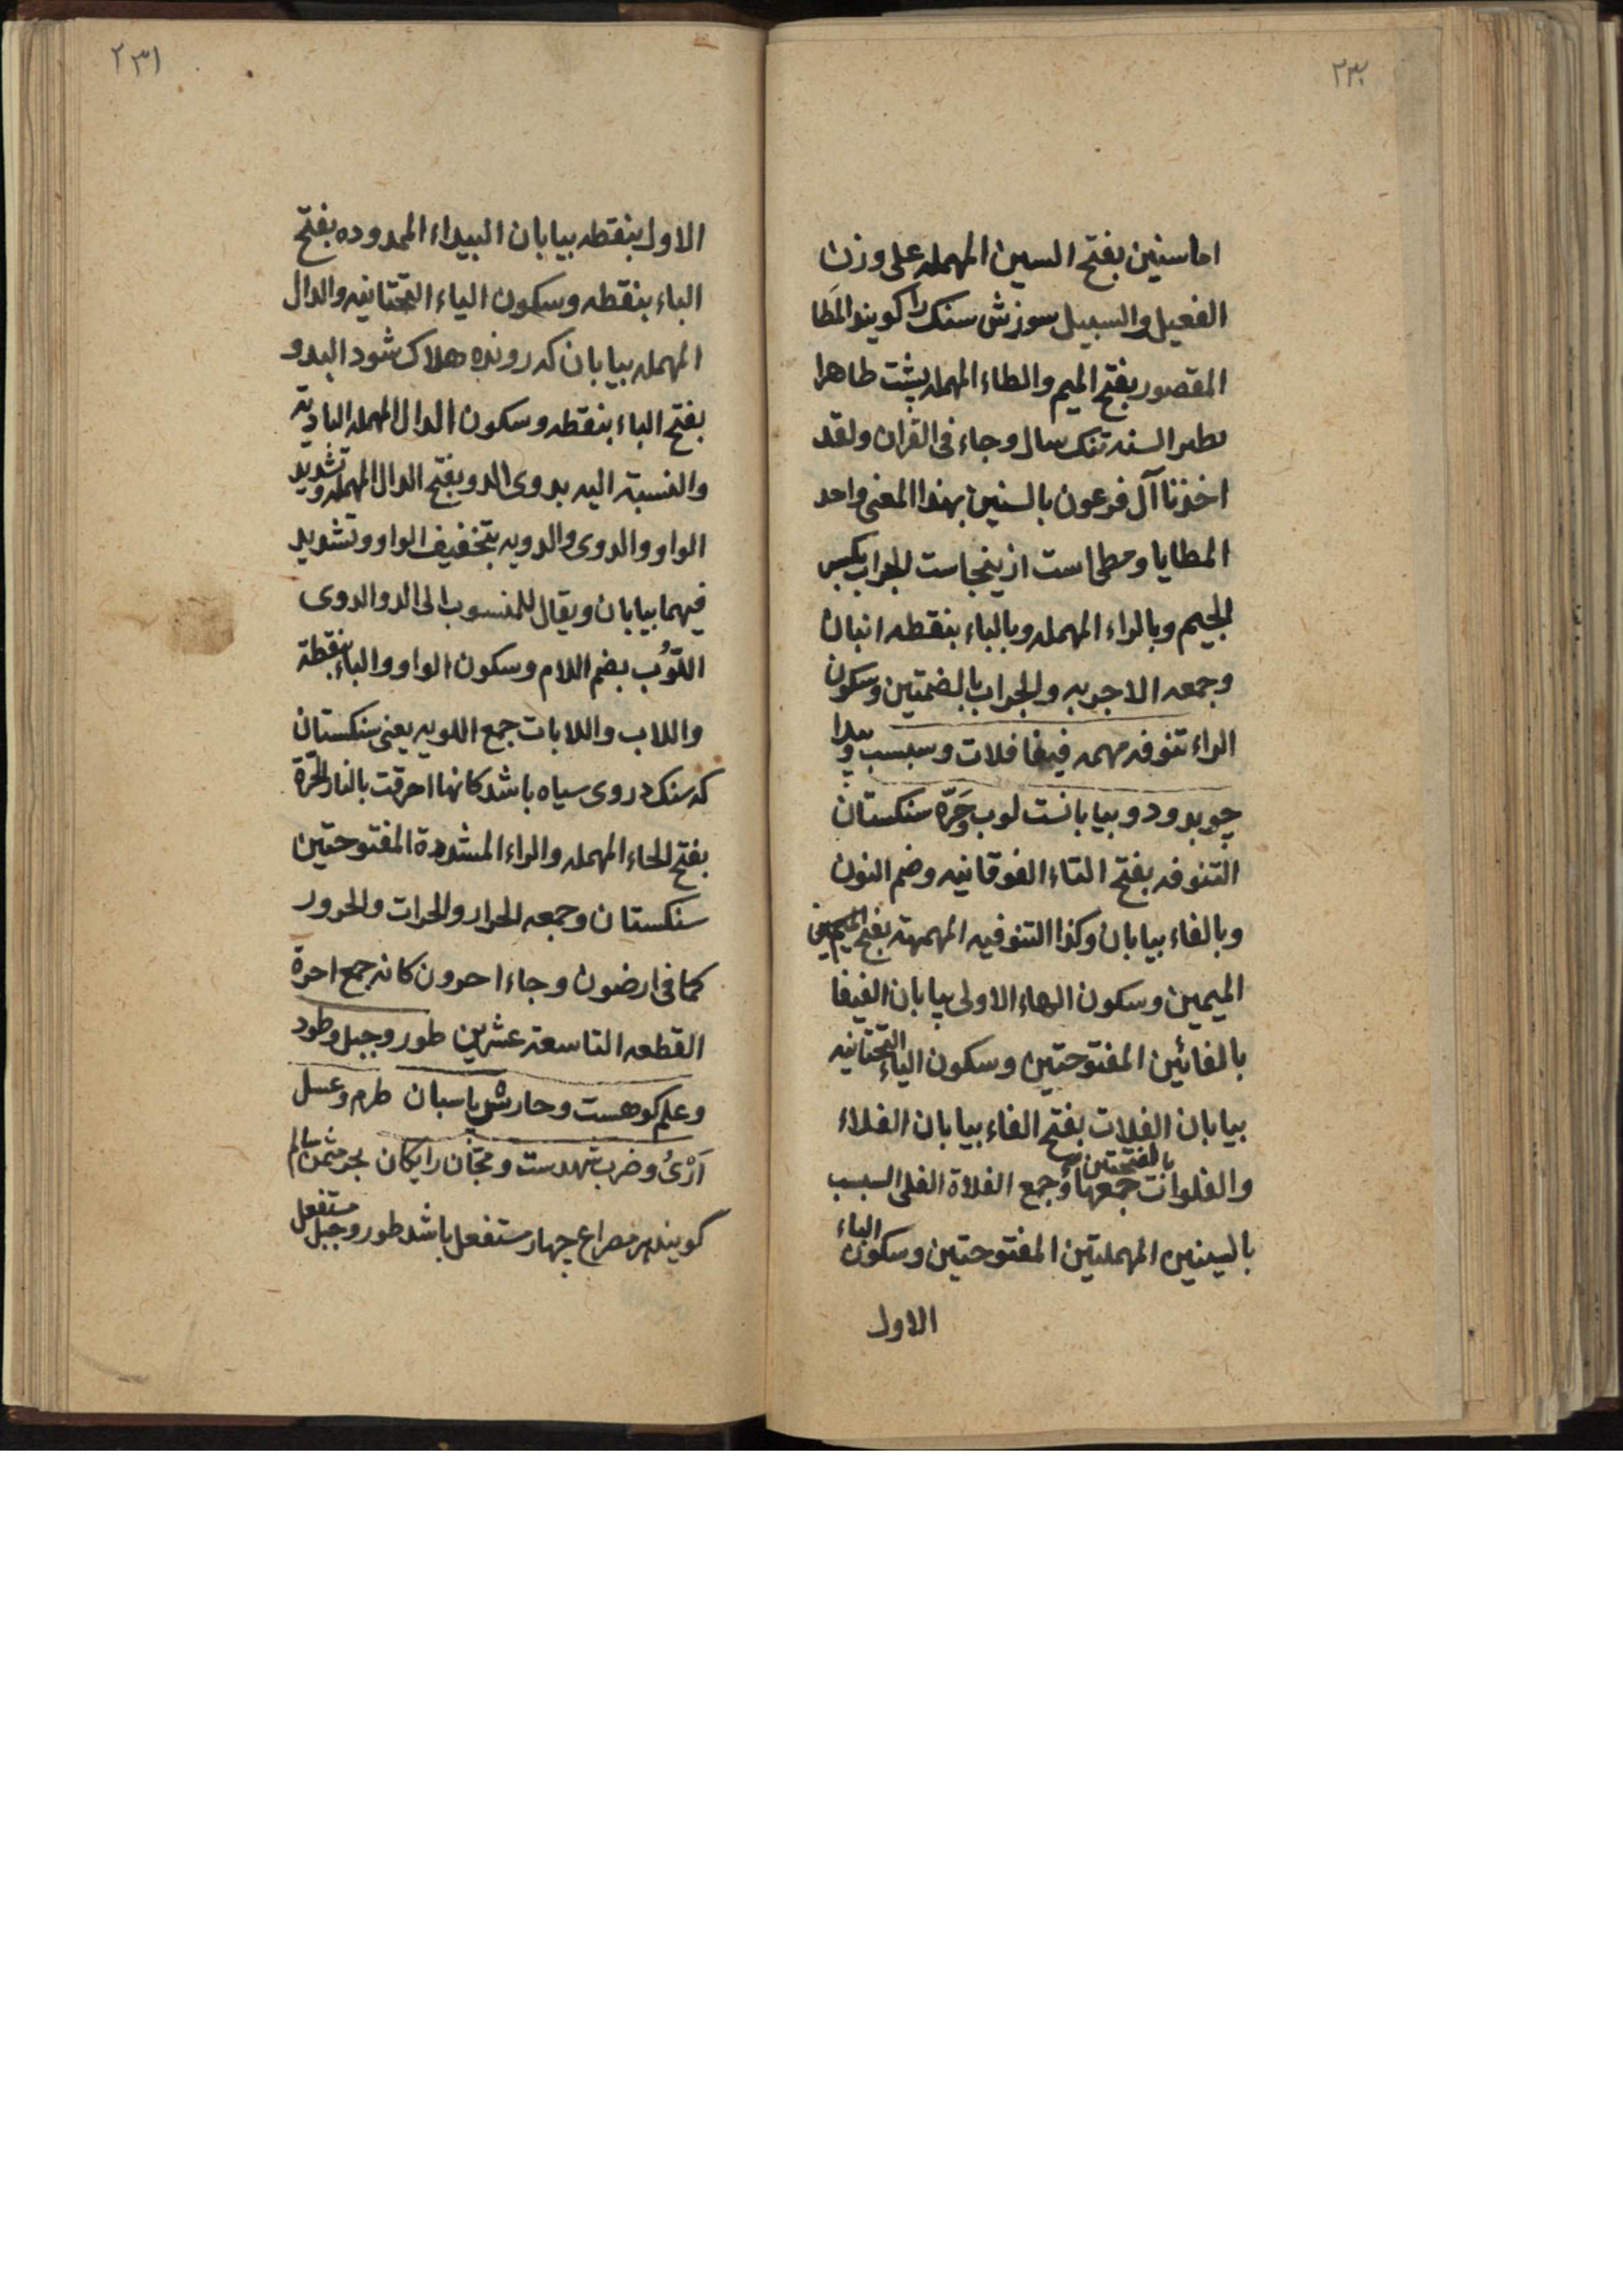 ٢٣٠
اماسنین بفتح السین المهمله علی وزن
الفعیل والسبیل سوزش سنک را کویند المَطَا
المقصور بفتح المیم والطاء المهمله پشت
السنه تنک سال وجاء فی القران ولقد
اخذنا آل فرعون بالسنین بهذا المعنی واحد
المطایا ومطاست ازینجاست الجراب بکسر
الجیم وبالراء المهمله وبالباء بنقطه انبان
وجمعه الاجربه والجراب بالضمتین وسکون
الراء تنوفه مهمه فیفا فلات وسبسب وبیدا
چو بدو دو بیابانست لوب وحَرّه سنکستان
التنوفه بفتح التاء الفوقانیه وضم النون
وبالفاء بیابان وکذا التنوفیه المهمهة بفتح
المیمین وسکون الهاء الاولی بیابان الفیفا
بالفائین المفتوحتین وسکون الیاء التحتانیه
بیابان الفلات بفتح الفاء بیابان الفلاء
والفلوات بالفتحتین جمعها وجمع الفلاة الفلی السبسب
بالسینین المهملتین المفتوحتین وسکون الباء
الاول
٢٣١
الاول بنقطه بیابان البیداء الممدوده بفتح
الباء بنقطه وسکون الیاء التحتانیه والدال
المهمله بیابان که رونده هلاک شود البدو
بفتح الباء بنقطه وسکون الدال المهمله البادیة
والنسبة الیه بدوی الدو بفتح الدال المهمله وتشدید
الواو والدوی والدویه بتخفیف الواو وتشدید
فیهما بیابان ویقال للمنسوب الی الدو الدوی
اللوُب بضم اللام وسکون الواو والباء بنقطة
واللاب واللابات جمع اللوبه یعنی سنکستان
که سنک دروی سیاه باشد کانها احرقت بالنار الحَرّة
بفتح الحاء المهمله والراء المشددة المفتوحتین
سنکستان وجمعه الحرار والحرات والحرور
کما فی ارضون وجاء احرون کانه جمع احرة
القطعه التاسعة عشرین طور وجبل وطود
وعلم کوهست وحارش پاسبان طرم وعسل
آرْیُ وضرب شهدست ومجّان رایکان بحر مثمن سالم
کویند هر مصراع چهار مستفعل باشد طور وجبل مستفعل